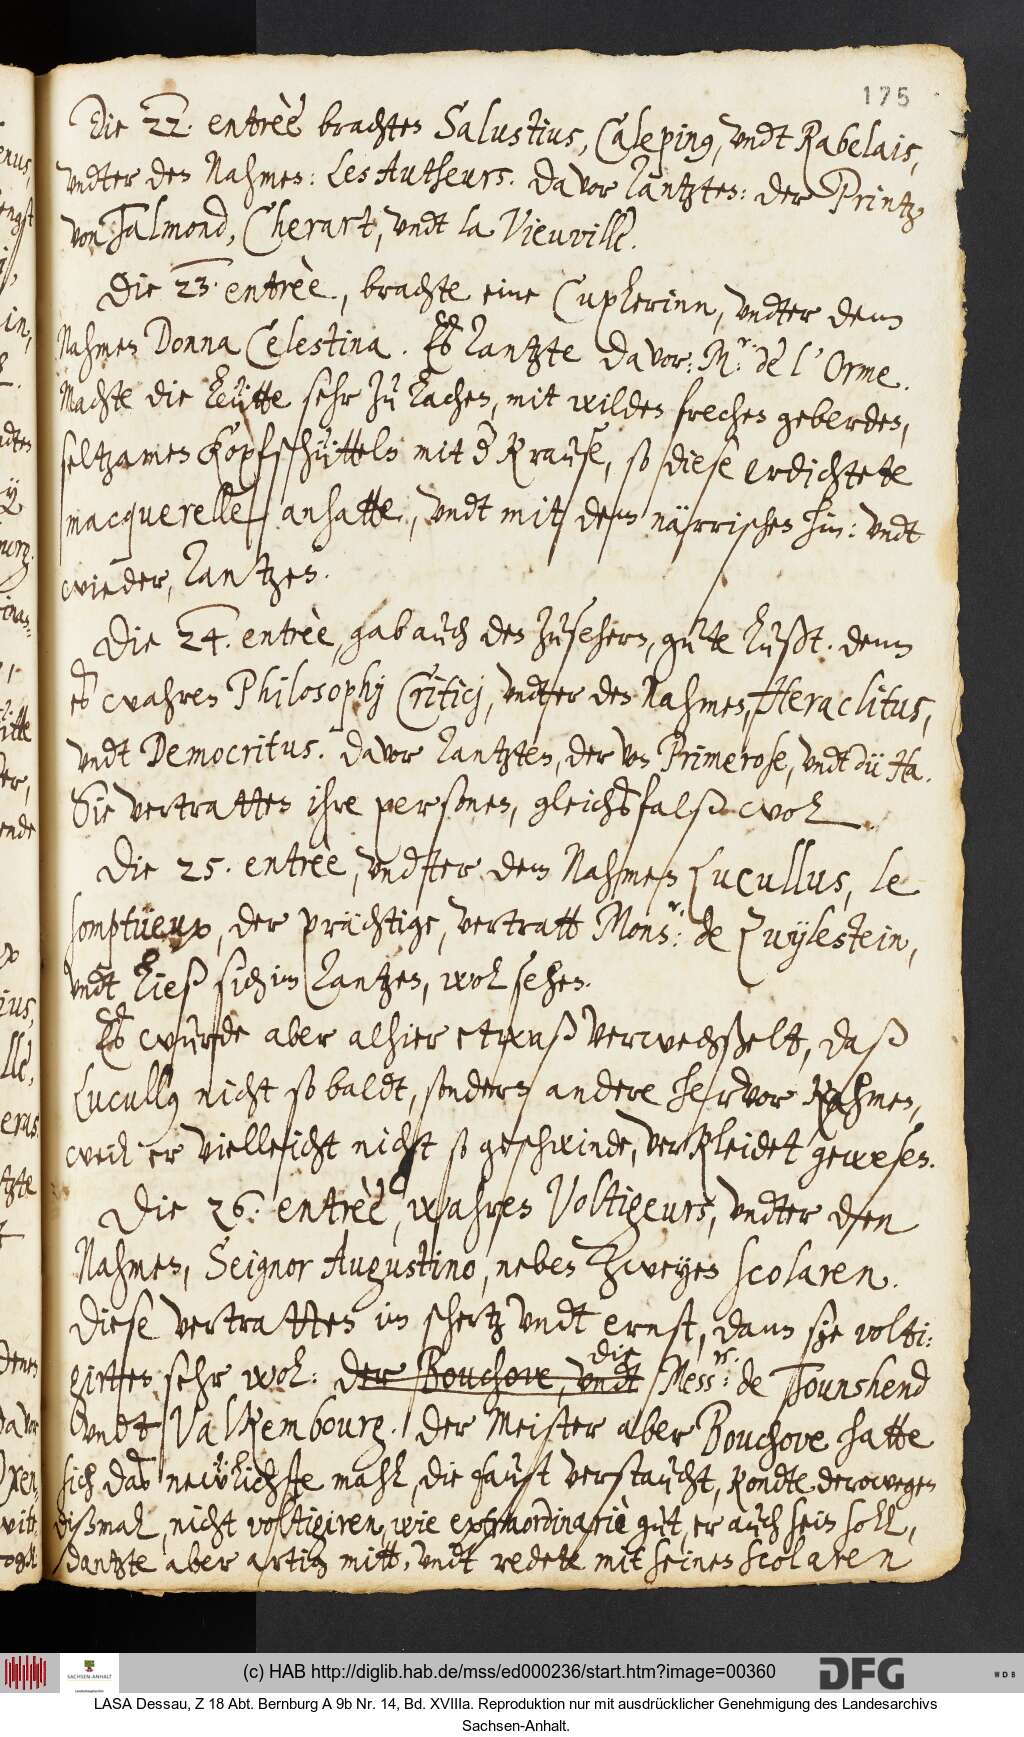 175
Die 22. entrèe brachten Salustius, Caleping, vndt Rabelais,
vndter den Nahmen: Les Autheurs. Davor tantzten: der Printz
von Talmond, Cherart, vndt la Vieuville.
Die 23. entrèe, brachte eine Cuplerinn, vndter dem
Nahmen Donna Celestina. Eß tantzte davor: Mr: de l'Orme.
Machte die leütte sehr zu lachen, mit wilden frechen geberden,
seltzamen kopfschütteln mit der krause, so diese erdichtete
macquerelle anhatte, vndt mit dem närrischen hin: vndt
wieder, tantzen.
Die 24. entrèe, gab auch den zusehern, gute lust. denn
es wahren Philosophj Criticj, vndter den Nahmen, Heraclitus,
vndt Democritus. davor tantzten, der von Primerose, vndt dü Ha.
Sie vertratten ihre personen, gleichsfalß wol.
Die 25. entrèe, vndter dem Nahmen Lucullus, le
somptüeux, der prächtige, vertratt Monsr: de Zuylestein,
vndt ließ sich im tantzen, wol sehen.
Es wurde aber alhier etwaß verwechßelt, daß
Lucullg nicht so baldt, sondern andere hervor kahmen,
weil er vielleicht nicht so geschwinde, verkleidet gewesen.
Die 26. entrèe, wahren Voltigeurs, vndter den
Nahmen, Seignor Augustino, neben zweyen scolaren.
Diese vertratten im schertz vndt ernst, dann sie volti:
girten sehr wol: der Bouchove, vndt die Messrs: de Tounshend
vndt Valkembourg. der Meister aber Bouchove hatte
sich das newliche mahl, die faust verstaucht, kondte derowegen
dißmal, nicht voltigiren, wie extraordinariè gut, er auch sein soll,
dantzte aber artig mitt, vndt redete mit seinen scolaren
(c) HAB http://diglib.hab.de/mss/ed000236/start.htm?image=00360
SACHSEN-ANHALT
DFG
WDB
LASA Dessau, Z 18 Abt. Bernburg A 9b Nr. 14, Bd. XVIIIa. Reproduktion nur mit ausdrücklicher Genehmigung des Landesarchivs
Sachsen-Anhalt.